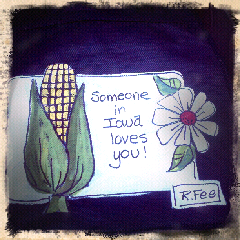 Someone
in
Iowa
loves
you!
R.Fee